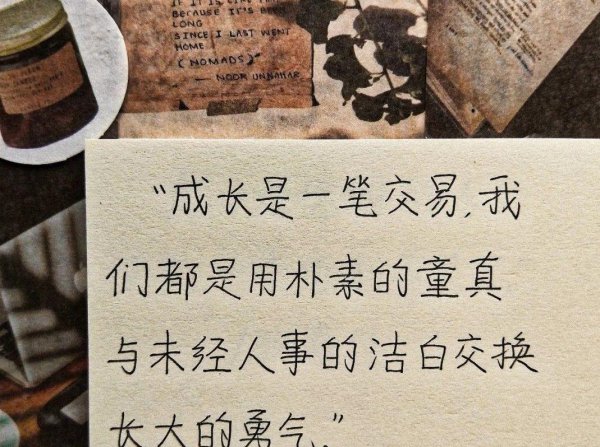 BECAUSE IT'S BEEN
LONG
SINCE I LAST WENT
HOME
(NOMADS)"
“成长是一笔交易,我
们都是用朴素的童真
与未经人事的洁白交换
长大的勇气.”